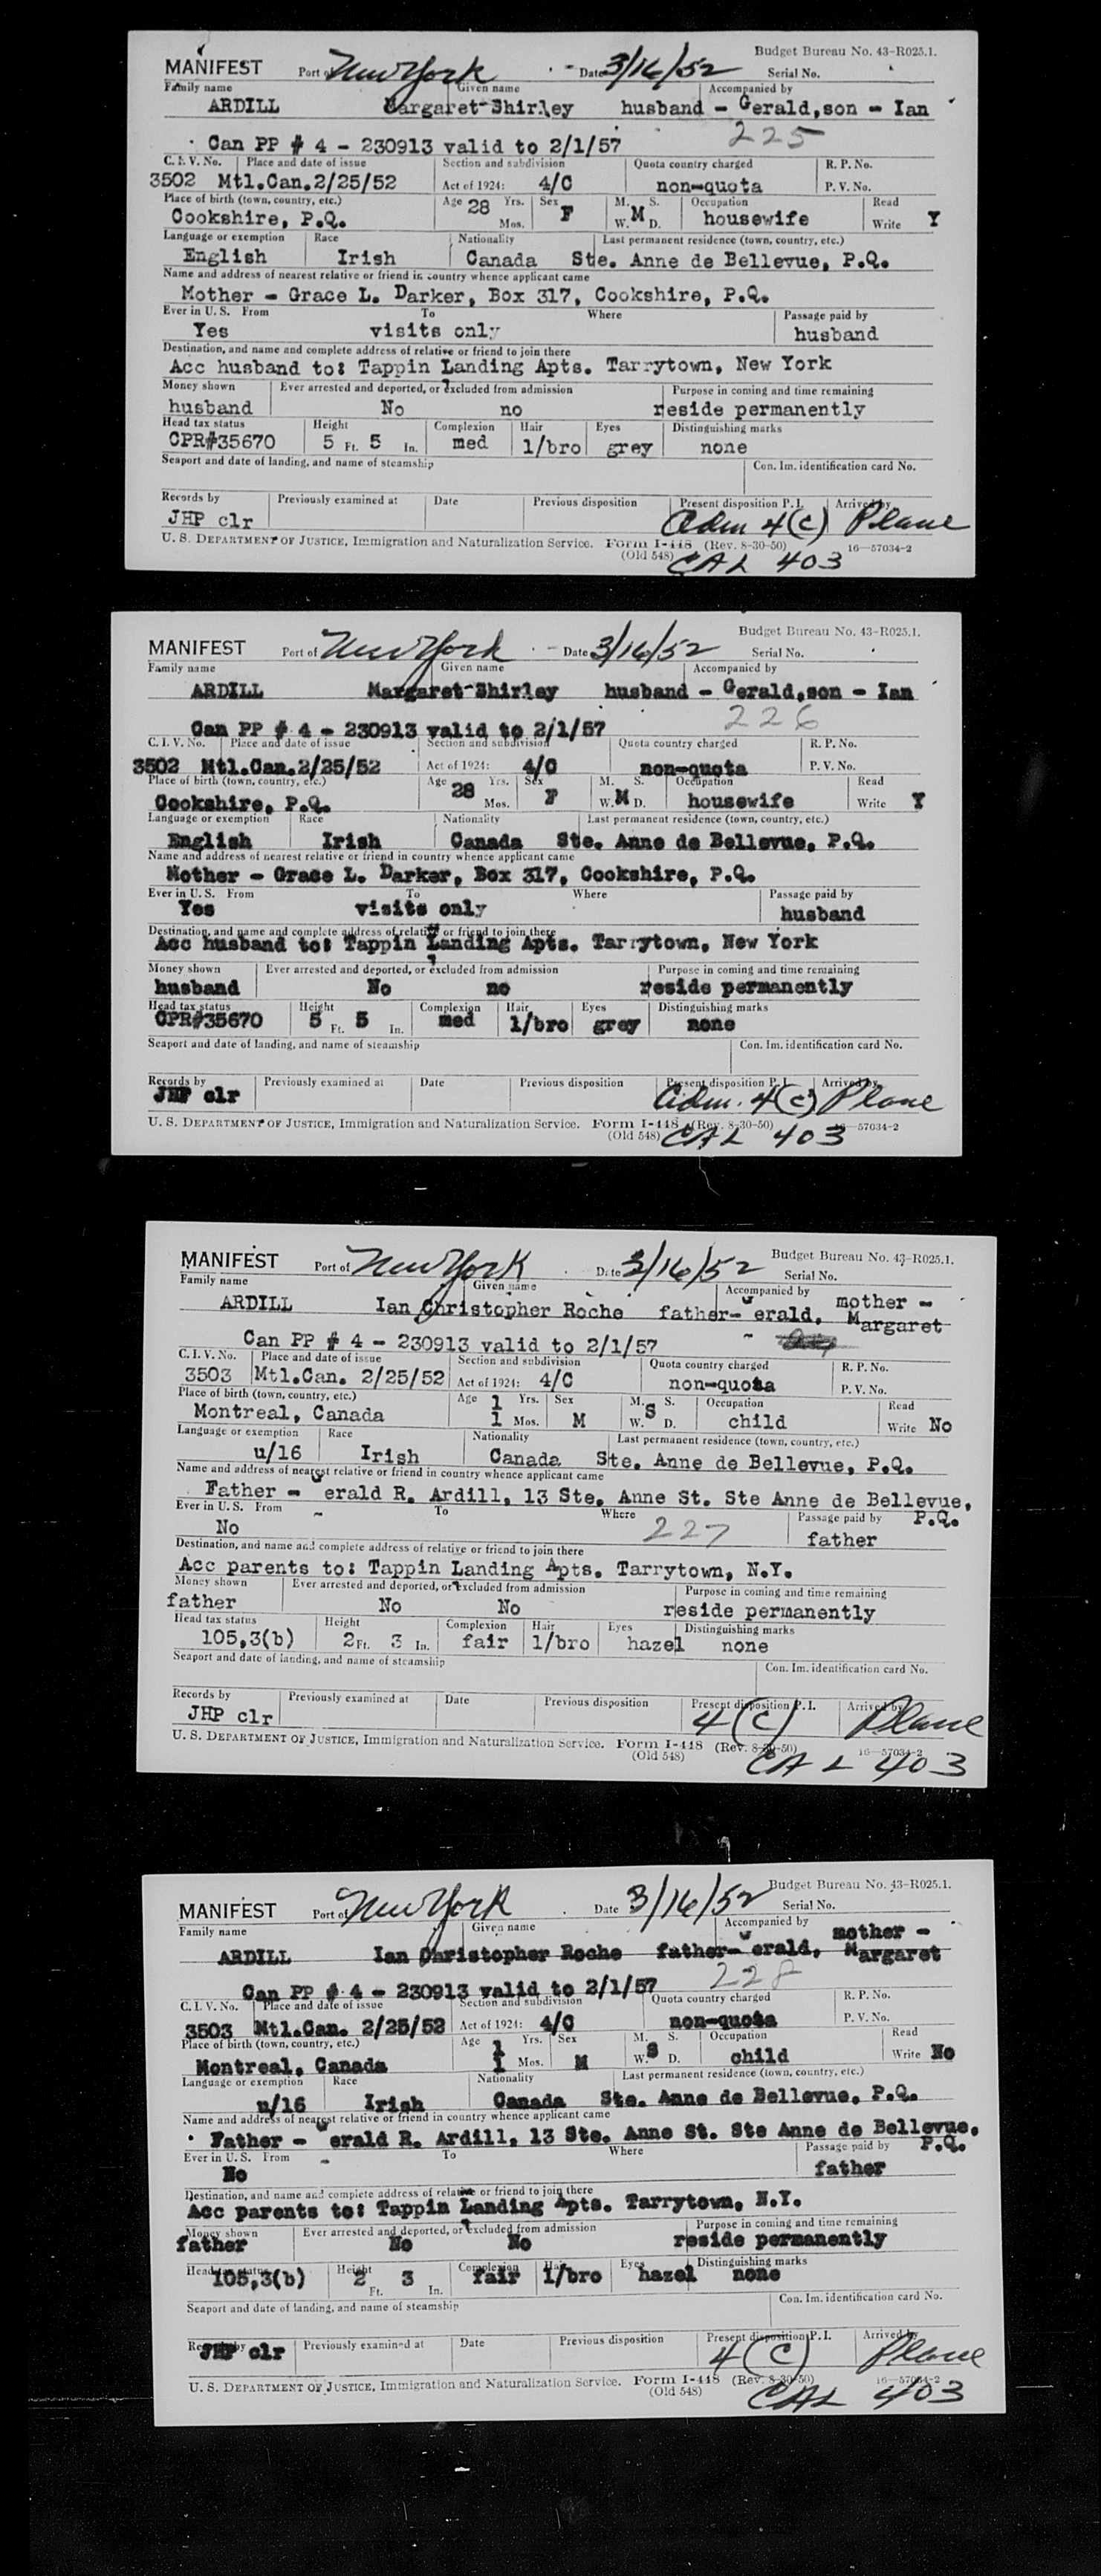 Budget Bureau No. 43-R025.1.
MANIFEST Port of New York Date 3/16/52 Serial No.
Family name Given name Accompanied by
ARDILL Margaret Shirley husband - Gerald, son - Ian
Can PP # 4 - 230913 valid to 2/1/57 225
C. I. V. No. Place and date of issue Section and subdivision Quota country charged R. P. No.
3502 Mtl.Can.2/25/52 Act of 1924: 4/C non-quota P. V. No.
Place of birth (town, country, etc.) Age 28 Yrs. Sex M. S. Occupation Read
Cookshire, P.Q. Mos. F W. M D. housewife Write Y
Language or exemption Race Nationality Last permanent residence (town, country, etc.)
English Irish Canada Ste. Anne de Bellevue, P.Q.
Name and address of nearest relative or friend in country whence applicant came
Mother - Grace L. Darker, Box 317, Cookshire, P.Q.
Ever in U. S. From To Where Passage paid by
Yes visits only husband
Destination, and name and complete address of relative or friend to join there
Acc husband to: Tappin Landing Apts. Tarrytown, New York
Money shown Ever arrested and deported, or excluded from admission Purpose in coming and time remaining
husband No no reside permanently
Head tax status Height Complexion Hair Eyes Distinguishing marks
CPR#35670 5 Ft. 5 In. med l/bro grey none
Seaport and date of landing, and name of steamship Con. Im. identification card No.
Records by Previously examined at Date Previous disposition Present disposition P. I. Arrived by
JHP clr Adm 4(c) Plane
U. S. DEPARTMENT OF JUSTICE, Immigration and Naturalization Service. Form I-418 (Rev. 8-30-50) 16-57034-2
(Old 548) CAL 403
Budget Bureau No. 43-R025.1.
MANIFEST Port of New York Date 3/16/52 Serial No.
Family name Given name Accompanied by
ARDILL Margaret Shirley husband - Gerald, son - Ian
Can PP # 4 - 230913 valid to 2/1/57 226
C. I. V. No. Place and date of issue Section and subdivision Quota country charged R. P. No.
3502 Mtl.Can.2/25/52 Act of 1924: 4/C non-quota P. V. No.
Place of birth (town, country, etc.) Age 28 Yrs. Sex M. S. Occupation Read
Cookshire, P.Q. Mos. F W. M D. housewife Write Y
Language or exemption Race Nationality Last permanent residence (town, country, etc.)
English Irish Canada Ste. Anne de Bellevue, P.Q.
Name and address of nearest relative or friend in country whence applicant came
Mother - Grace L. Darker, Box 317, Cookshire, P.Q.
Ever in U. S. From To Where Passage paid by
Yes visits only husband
Destination, and name and complete address of relative or friend to join there
Acc husband to: Tappin Landing Apts. Tarrytown, New York
Money shown Ever arrested and deported, or excluded from admission Purpose in coming and time remaining
husband No no reside permanently
Head tax status Height Complexion Hair Eyes Distinguishing marks
CPR#35670 5 Ft. 5 In. med l/bro grey none
Seaport and date of landing, and name of steamship Con. Im. identification card No.
Records by Previously examined at Date Previous disposition Present disposition P. I. Arrived by
JHP clr Adm. 4(c) Plane
U. S. DEPARTMENT OF JUSTICE, Immigration and Naturalization Service. Form I-418 (Rev. 8-30-50) 16-57034-2
(Old 548) CAL 403
Budget Bureau No. 43-R025.1.
MANIFEST Port of New York Date 3/16/52 Serial No.
Family name Given name Accompanied by
ARDILL Ian Christopher Roche father- Gerald, mother - Margaret
Can PP # 4 - 230913 valid to 2/1/57
C. I. V. No. Place and date of issue Section and subdivision Quota country charged R. P. No.
3503 Mtl.Can. 2/25/52 Act of 1924: 4/C non-quota P. V. No.
Place of birth (town, country, etc.) Age 1 Yrs. Sex M. S. Occupation Read
Montreal, Canada 1 Mos. M W. S D. child Write No
Language or exemption Race Nationality Last permanent residence (town, country, etc.)
u/16 Irish Canada Ste. Anne de Bellevue, P.Q.
Name and address of nearest relative or friend in country whence applicant came
Father - Gerald R. Ardill, 13 Ste. Anne St. Ste Anne de Bellevue, P.Q.
Ever in U. S. From To Where Passage paid by
No 227 father
Destination, and name and complete address of relative or friend to join there
Acc parents to: Tappin Landing Apts. Tarrytown, N.Y.
Money shown Ever arrested and deported, or excluded from admission Purpose in coming and time remaining
father No No reside permanently
Head tax status Height Complexion Hair Eyes Distinguishing marks
105,3(b) 2 Ft. 3 In. fair l/bro hazel none
Seaport and date of landing, and name of steamship Con. Im. identification card No.
Records by Previously examined at Date Previous disposition Present disposition P. I. Arrived by
JHP clr 4(c) Plane
U. S. DEPARTMENT OF JUSTICE, Immigration and Naturalization Service. Form I-418 (Rev. 8-30-50) 16-57034-2
(Old 548) CAL 403
Budget Bureau No. 43-R025.1.
MANIFEST Port of New York Date 3/16/52 Serial No.
Family name Given name Accompanied by
ARDILL Ian Christopher Roche father- Gerald, mother - Margaret
Can PP # 4 - 230913 valid to 2/1/57 228
C. I. V. No. Place and date of issue Section and subdivision Quota country charged R. P. No.
3503 Mtl.Can. 2/25/52 Act of 1924: 4/C non-quota P. V. No.
Place of birth (town, country, etc.) Age 1 Yrs. Sex M. S. Occupation Read
Montreal, Canada 1 Mos. M W. S D. child Write No
Language or exemption Race Nationality Last permanent residence (town, country, etc.)
u/16 Irish Canada Ste. Anne de Bellevue, P.Q.
Name and address of nearest relative or friend in country whence applicant came
Father - Gerald R. Ardill, 13 Ste. Anne St. Ste Anne de Bellevue, P.Q.
Ever in U. S. From To Where Passage paid by
No father
Destination, and name and complete address of relative or friend to join there
Acc parents to: Tappin Landing Apts. Tarrytown, N.Y.
Money shown Ever arrested and deported, or excluded from admission Purpose in coming and time remaining
father No No reside permanently
Head tax status Height Complexion Hair Eyes Distinguishing marks
105,3(b) 2 Ft. 3 In. fair l/bro hazel none
Seaport and date of landing, and name of steamship Con. Im. identification card No.
Records by Previously examined at Date Previous disposition Present disposition P. I. Arrived by
JHP clr 4(c) Plane
U. S. DEPARTMENT OF JUSTICE, Immigration and Naturalization Service. Form I-418 (Rev. 8-30-50) 16-57034-2
(Old 548) CAL 403